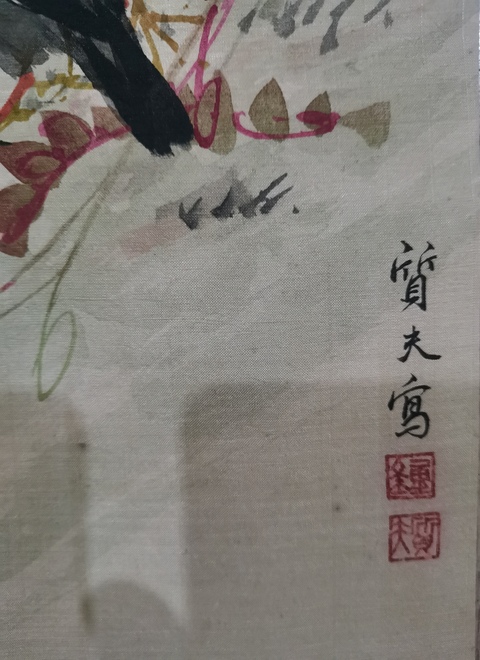 質夫寫
鍾
質夫